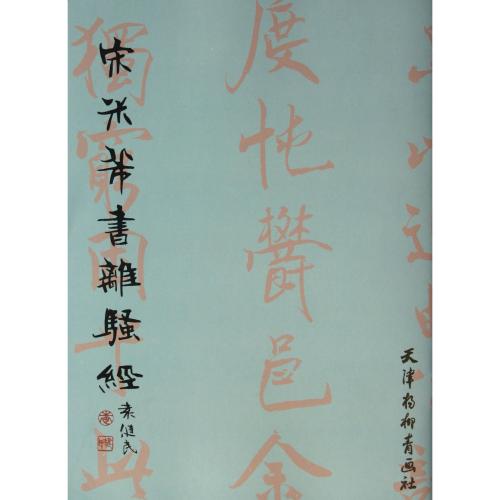 宋米芾書離騷經
袁健民
度忳鬱邑余
獨窮困乎此
天津杨柳青画社